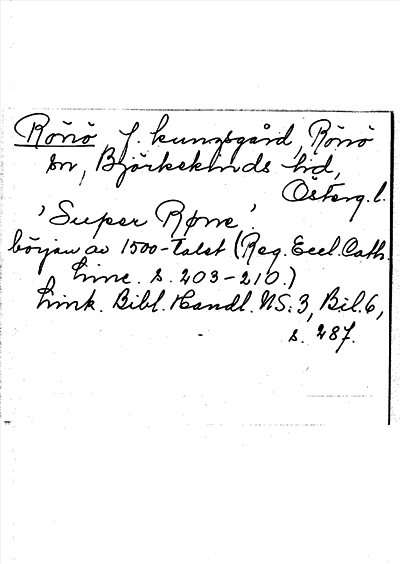 Rönö f. kungsgård, Rönö
sn, Björkekinds hd,
Österg. l.
'Super Røne'
början av 1500-talet (Reg. Eccl. Cath.
Linc. s. 203-210.)
Link. Bibl. Handl. NS: 3, Bil. 6,
s. 287.